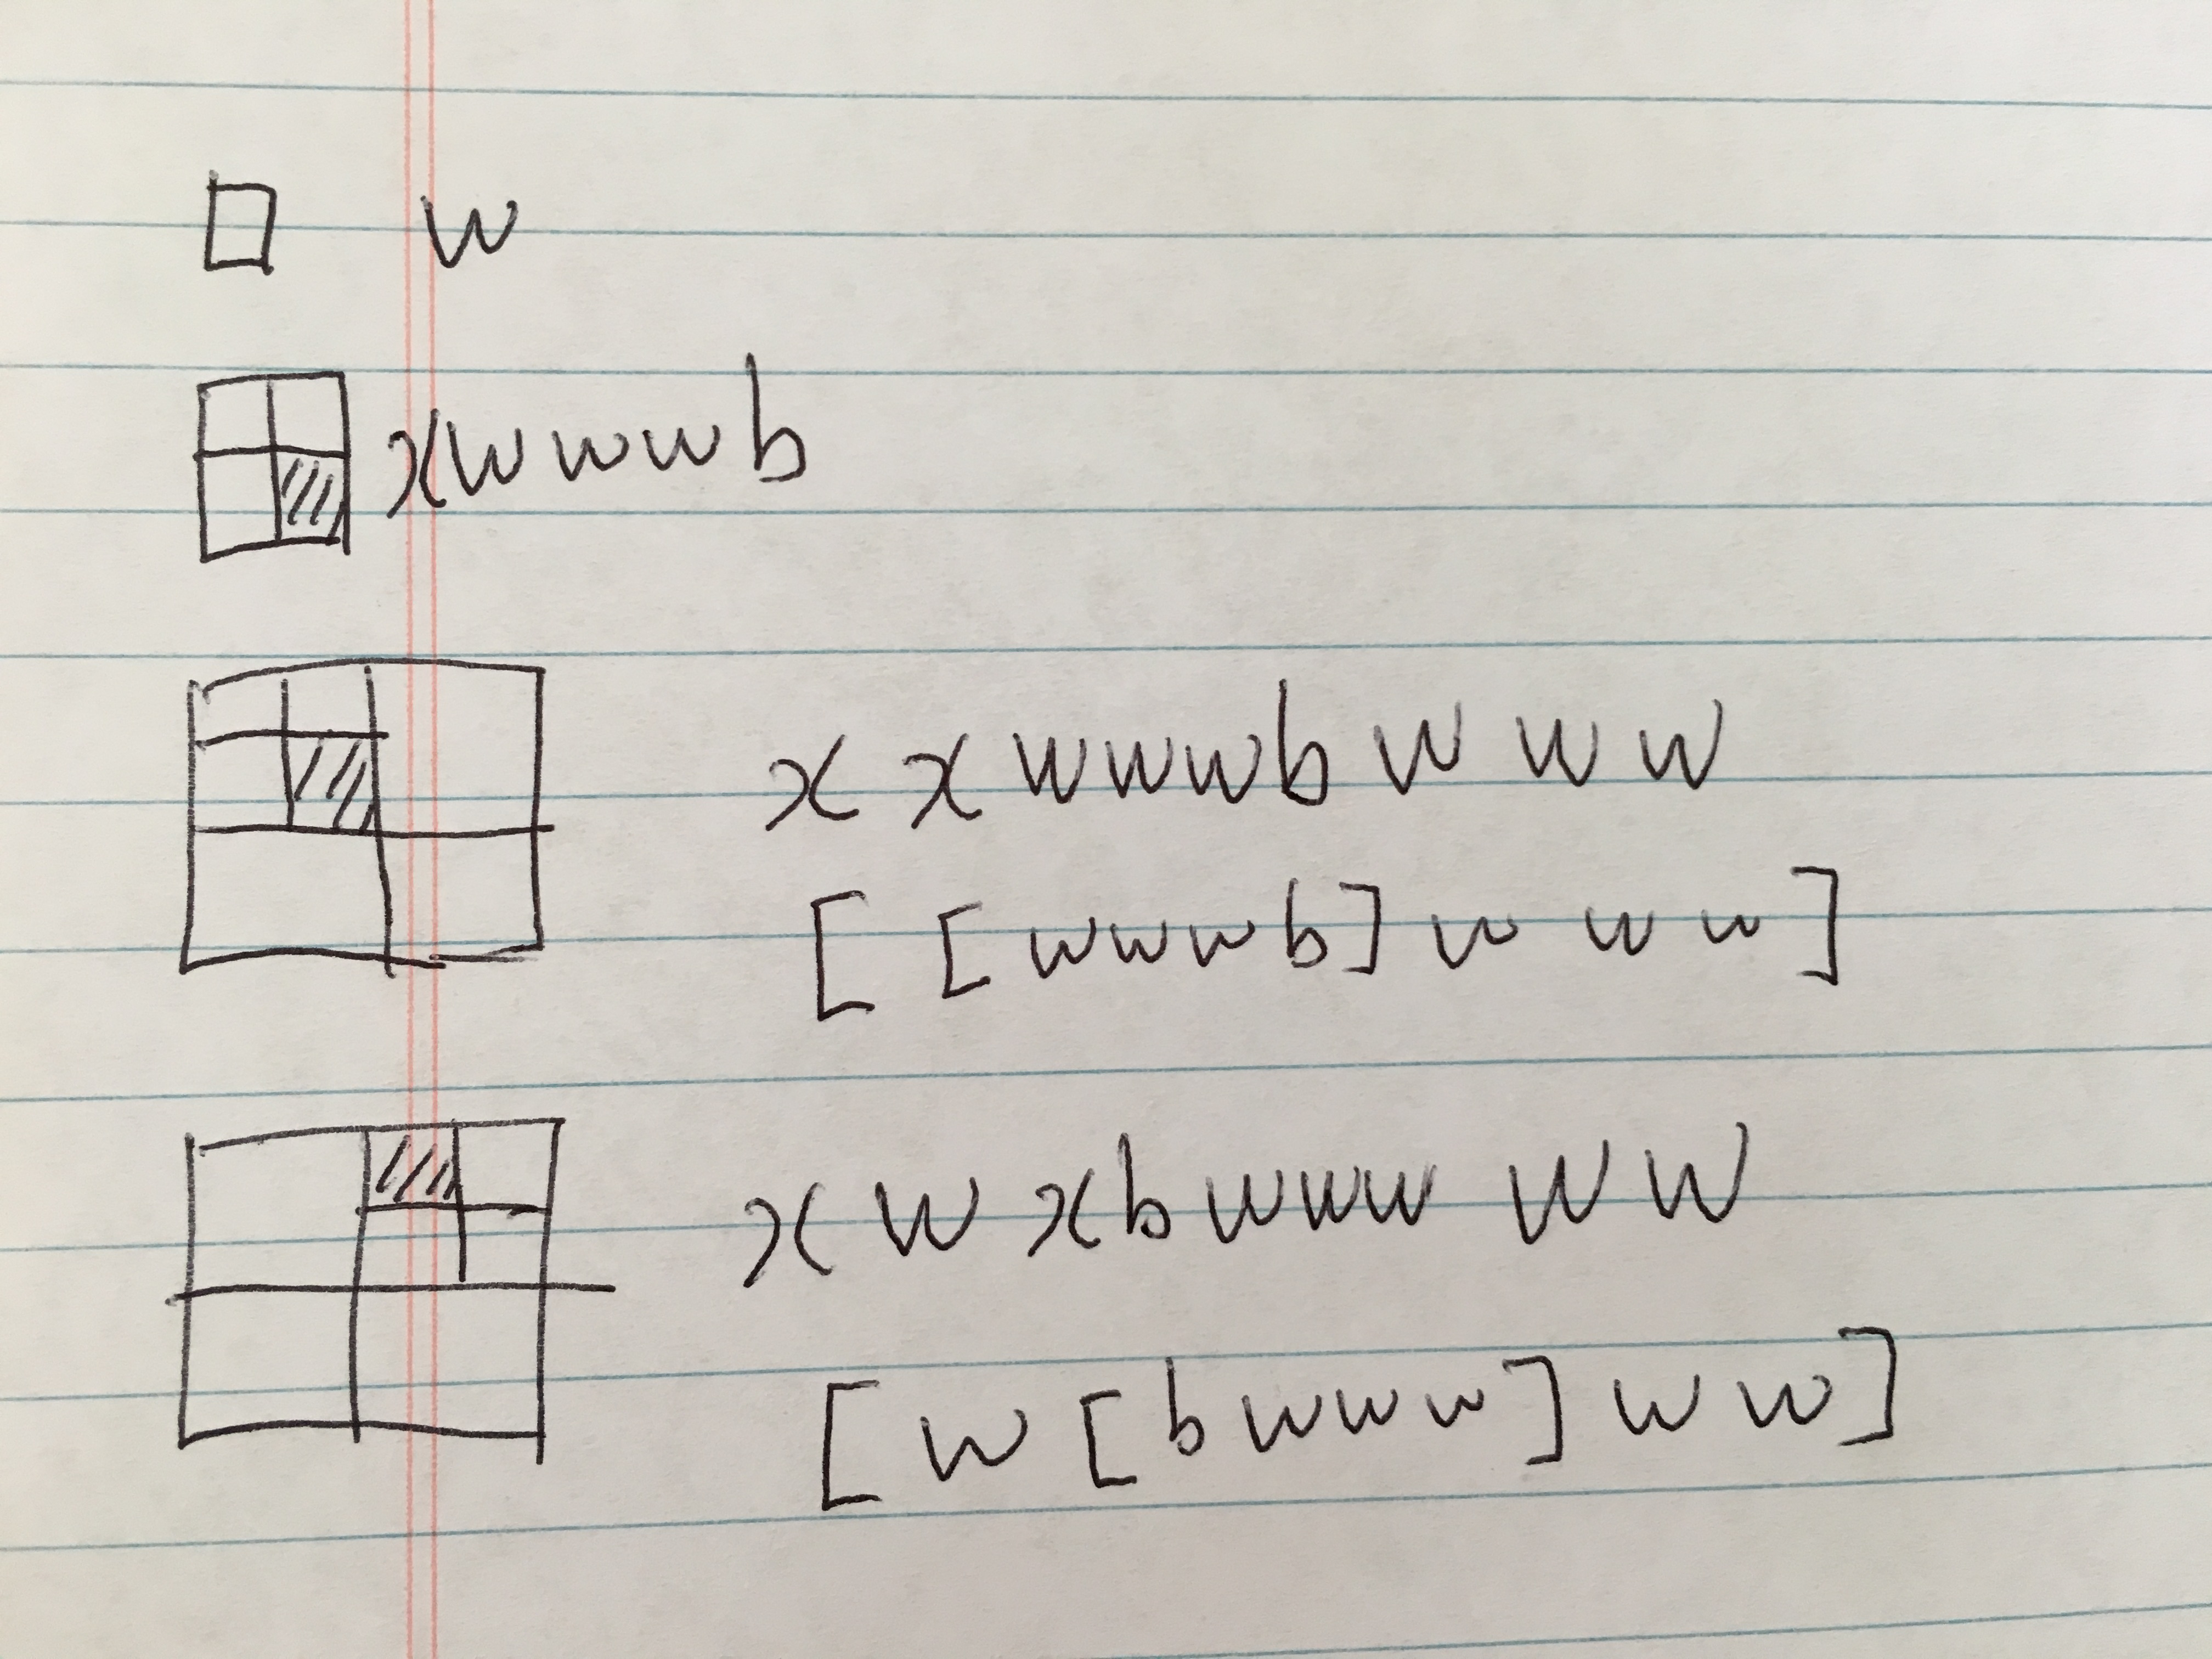 w
xwwwb
xxwwwbwww
[[wwwb]www]
xwxbwwwww
[w[bwww]ww]